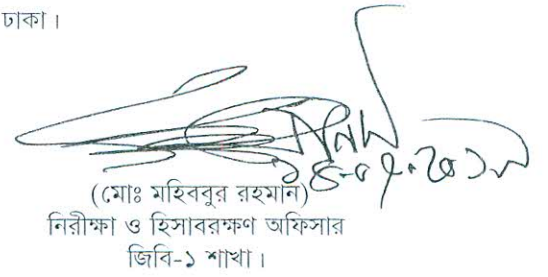 ঢাকা।
(মোঃ মহিববুর রহমান)
নিরীক্ষা ও হিসাবরক্ষণ অফিসার
জিবি-১ শাখা।